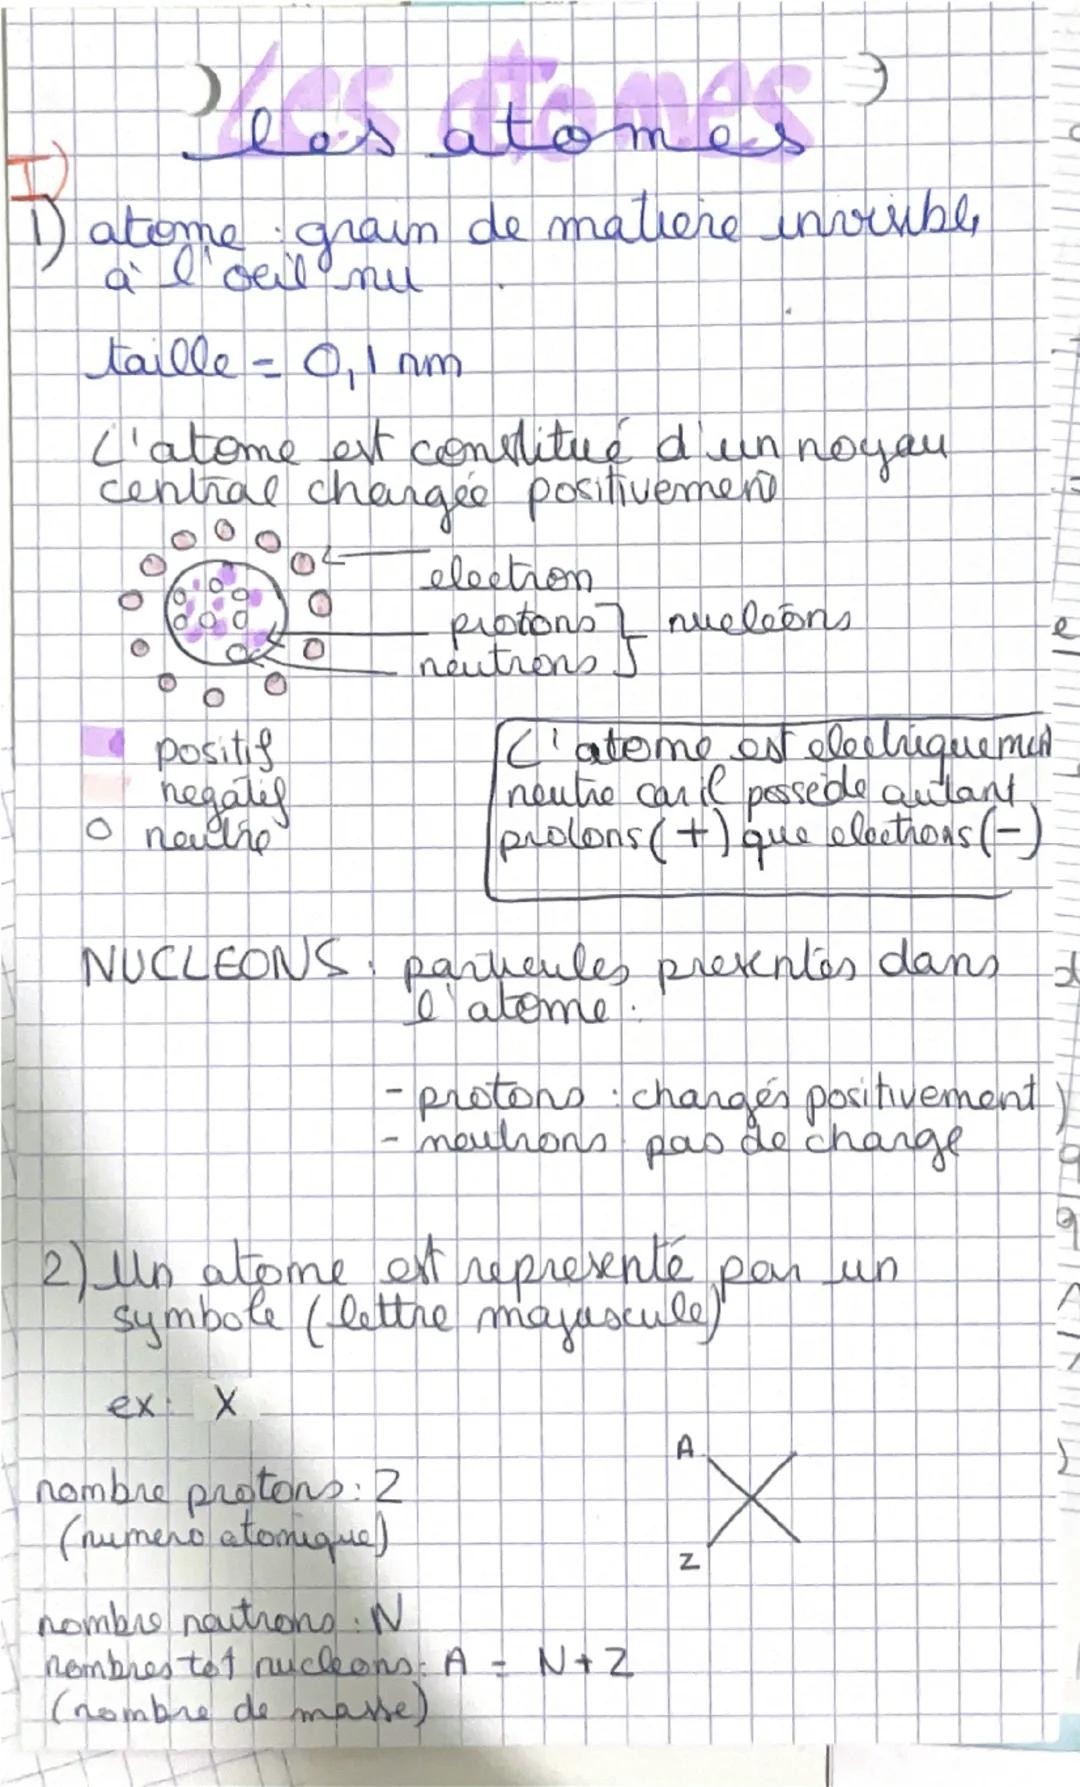 Les atomes
les atomes
I)
1) atome : grain de matière invisible
à l'oeil nu
taille = 0,1 nm
L'atome est constitué d'un noyau
central chargée positivement
electron
protons } nucléons
neutrons
positif
negatif
neutre
L'atome est electriquement
neutre car il possède autant
protons (+) que electrons (-)
NUCLEONS : particules presentes dans
l'atome.
- protons : chargés positivement
- neutrons : pas de charge
2) Un atome est représenté par un
symbole (lettre majuscule)
ex : X
A
X
Z
nombre protons : Z
(numero atomique)
nombre neutrons : N
nombres tot nucleons : A = N+Z
(nombre de masse)